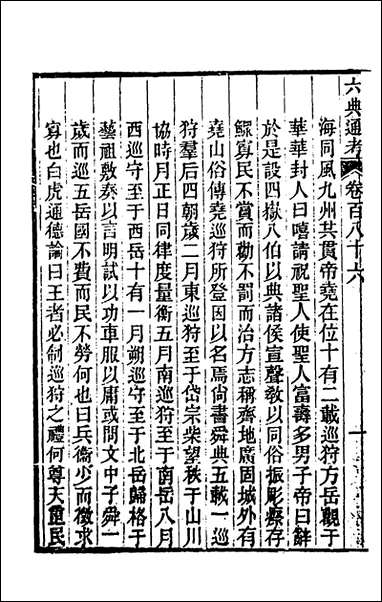 六典通考 卷百八十六
海同風九州共貫帝堯在位十有二載巡狩方岳觀于
華華封人曰嘻請祝聖人使聖人富壽多男子帝曰辭
於是設四嶽八伯以典諸侯宣聲敎以同俗振彫瘵存
鰥寡民不賞而勸不罰而治方志稱齊地廣固城外有
堯山俗傳堯巡狩所登因以名焉尙書舜典五載一巡
狩羣后四朝歲二月東巡狩至于岱宗柴望秩于山川
協時月正日同律度量衡五月南巡狩至于南岳八月
西巡守至于西岳十有一月朔巡守至于北岳歸格于
藝祖敷奏以言明試以功車服以庸或問文中子舜一
歲而巡五岳國不費而民不勞何也曰兵衞少而徵求
寡也白虎通德論曰王者必制巡狩之禮何尊天重民